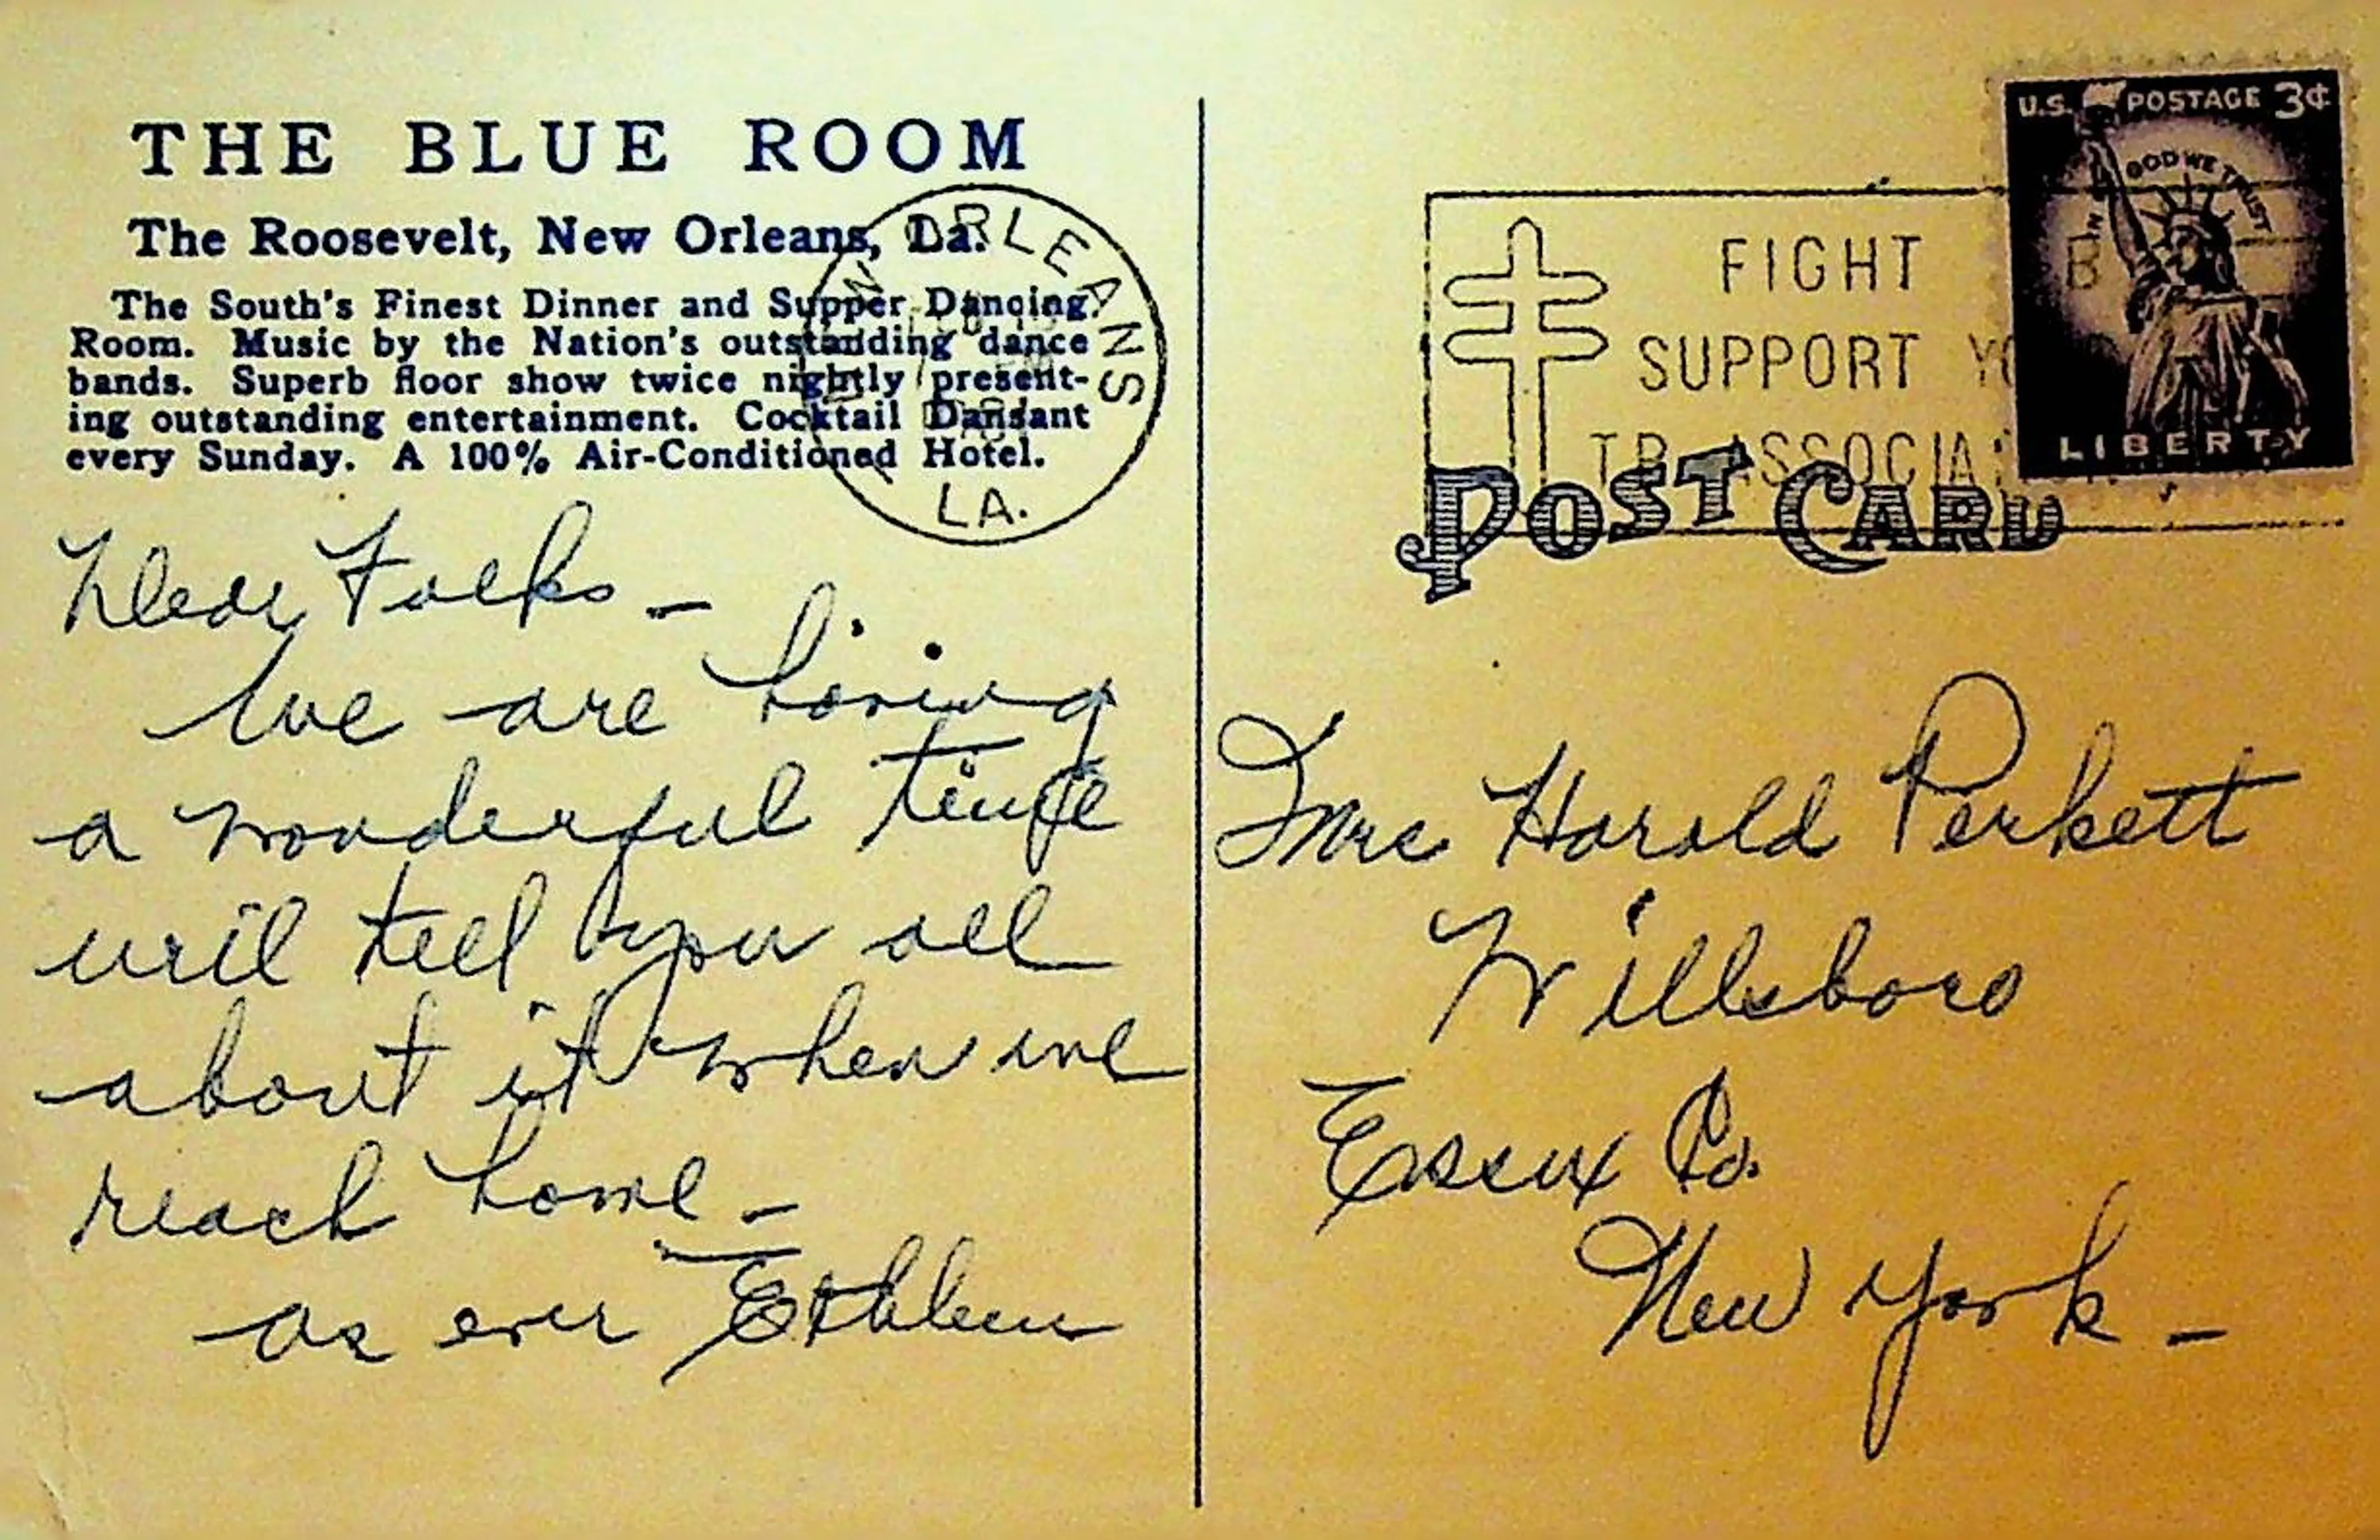 THE BLUE ROOM
The Roosevelt, New Orleans, La.
The South's Finest Dinner and Supper Dancing
Room. Music by the Nation's outstanding dance
bands. Superb floor show twice nightly present-
ing outstanding entertainment. Cocktail Dansant
every Sunday. A 100% Air-Conditioned Hotel.
ORLEANS
LA.
Dear Folks –
We are having
a wonderful time
will tell you all
about it when we
reach home –
as ever
U.S. POSTAGE 3¢
IN GOD WE TRUST
LIBERTY
FIGHT
SUPPORT
TB ASSOCIA
POST CARD
Mrs Harold Perkett
Willsboro
Essex Co.
New York –